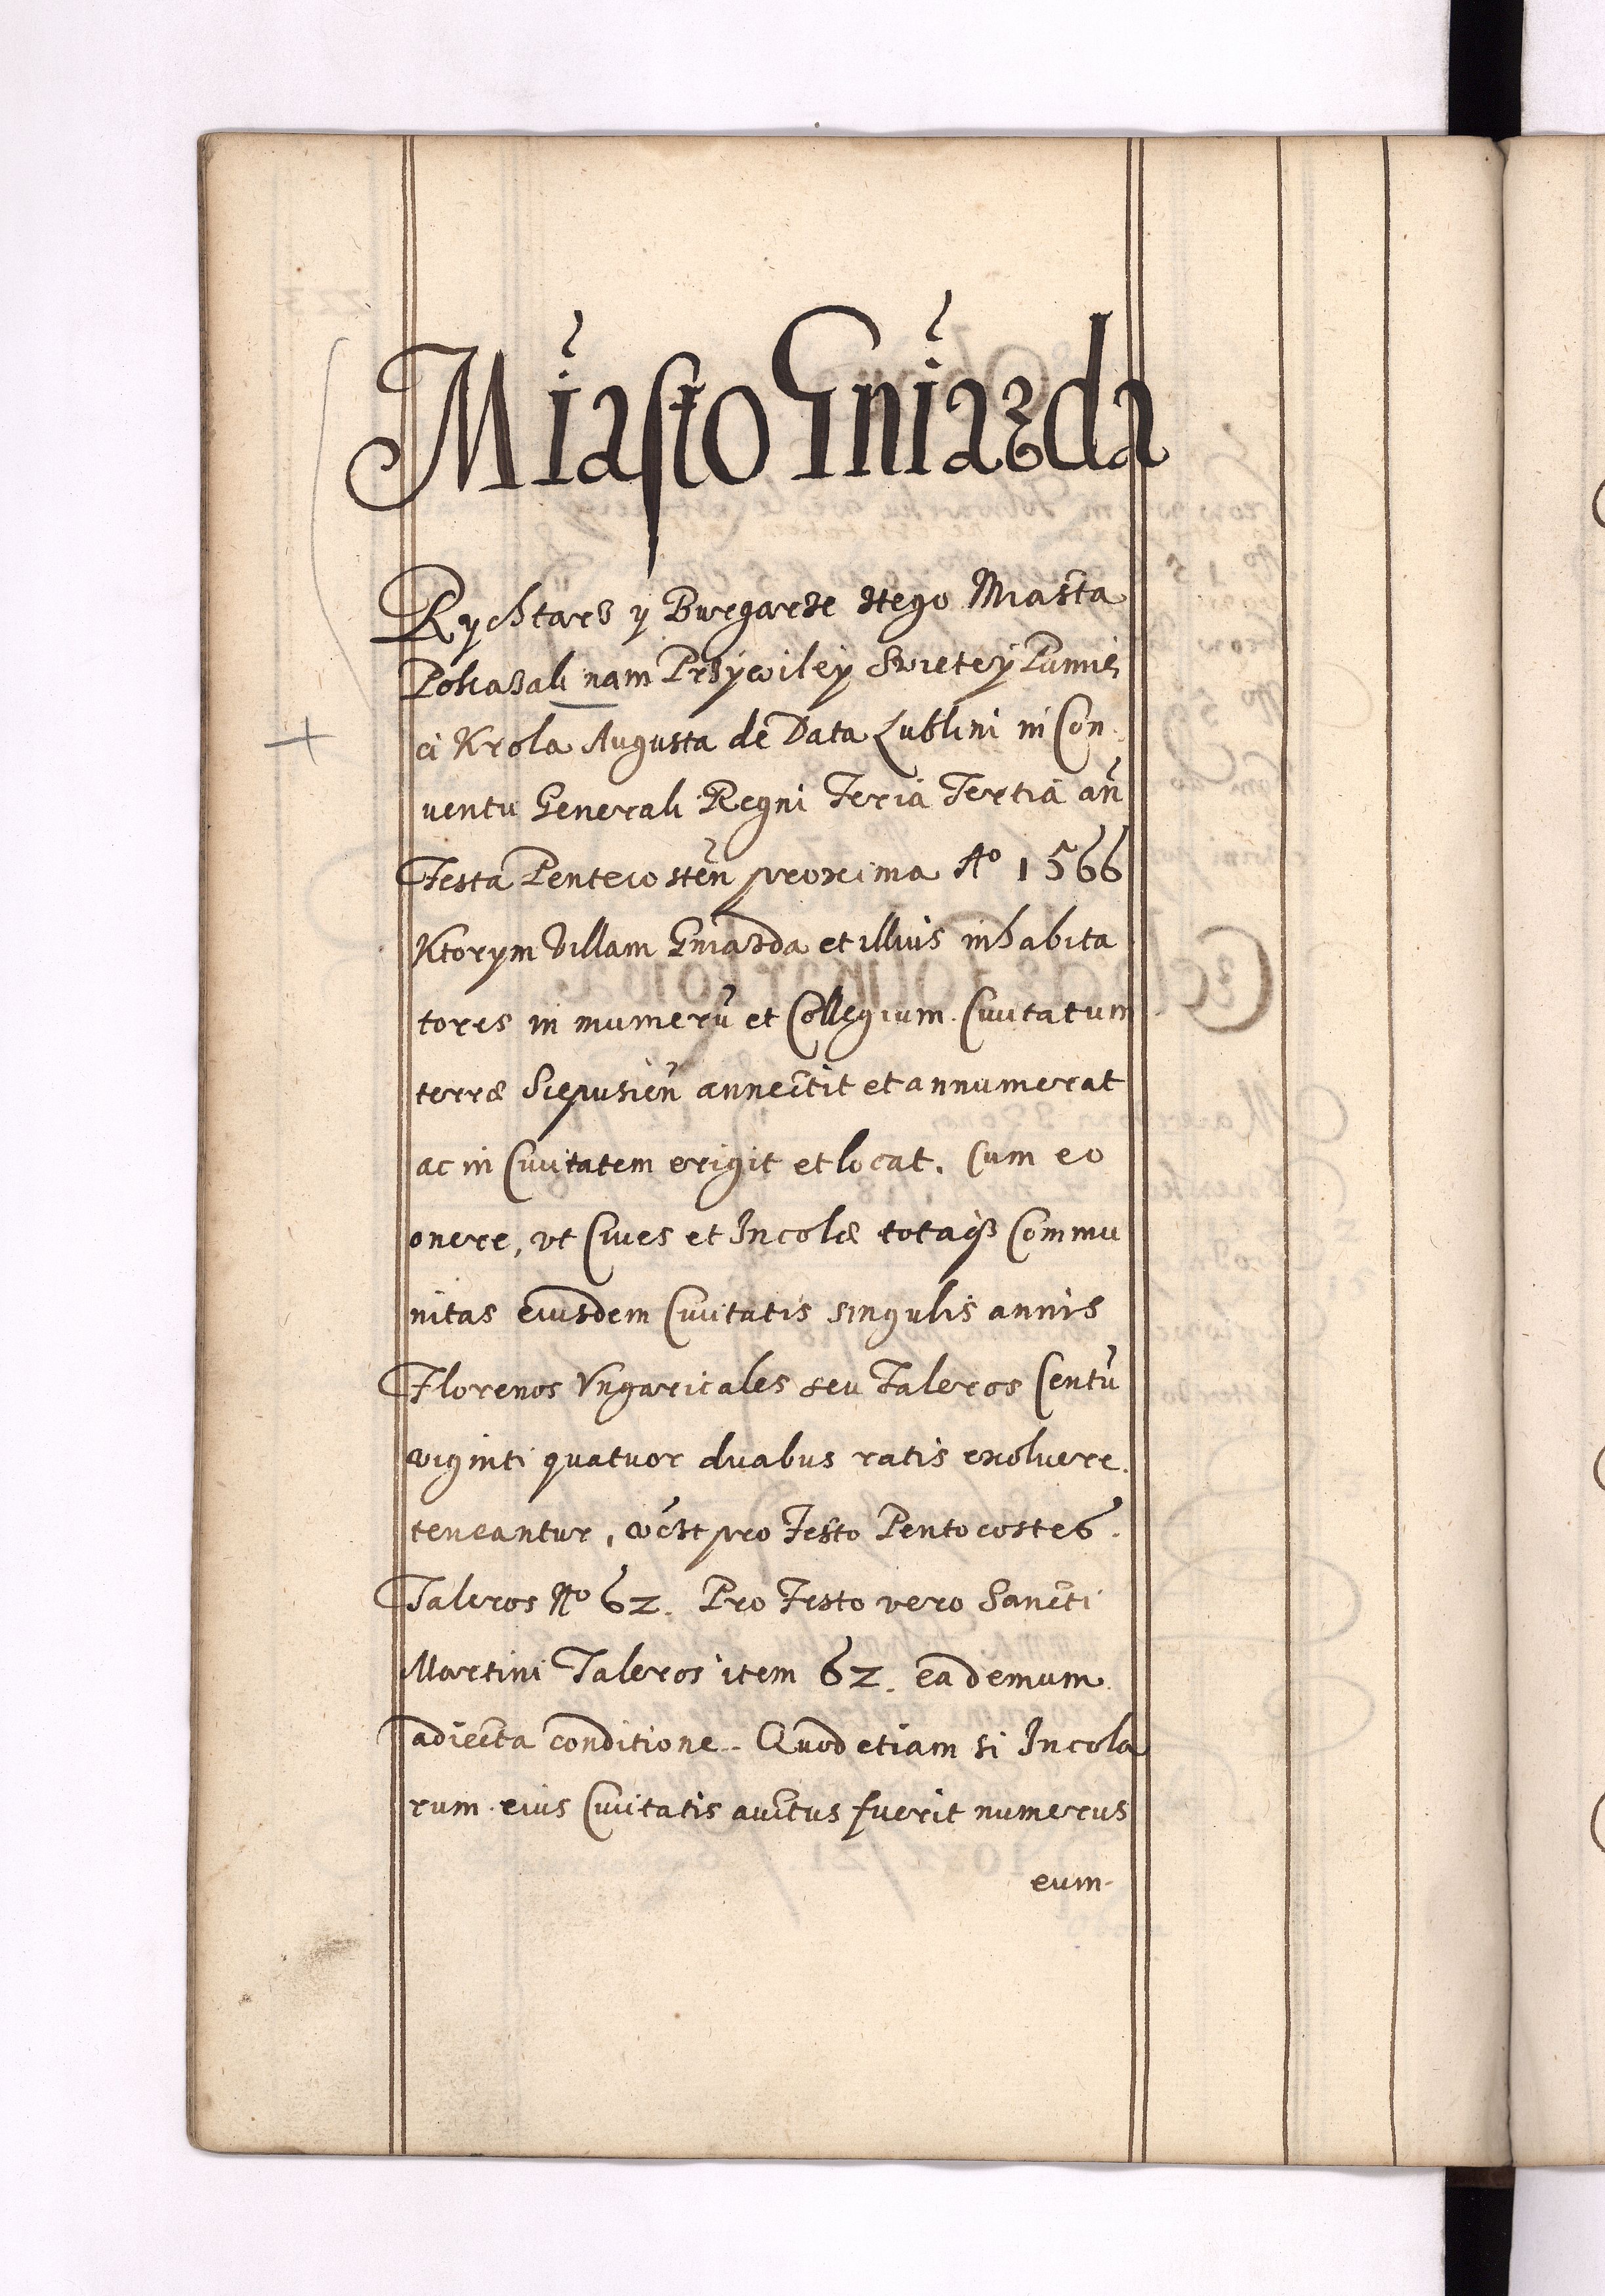 Miasto Gniazda
Rychtarz y Burgarze ztego Miasta
Pokazali nam Przywiley Swietey Pamie
ci Krola Augusta de Data Lublini in Con
ventu Generali Regni Feria Tertia an̄
Festa Pentecosten̄ proxima Aº 1566
Ktorym Villam Gniazda et illius inhabita
tores in numerū et Collegium Civitatum
terræ Scepusien̄ annectit et annumerat
ac in Civitatem erigit et locat. Cum eo
onere, ut Cives et Incolæ totaqȝ Commu
nitas eiusdem Civitatis singulis annis
Florenos Ungaricales seu Taleros Centū
viginti quatuor duabus ratis exolvere
teneantur, vczt pro Festo Pentocostes
Taleros Nº 62. Pro Festo vero Sancti
Martini Taleros item 62. ea demum
adiecta conditione. Quod etiam si Incola
rum eius Civitatis auctus fuerit numerus
eum